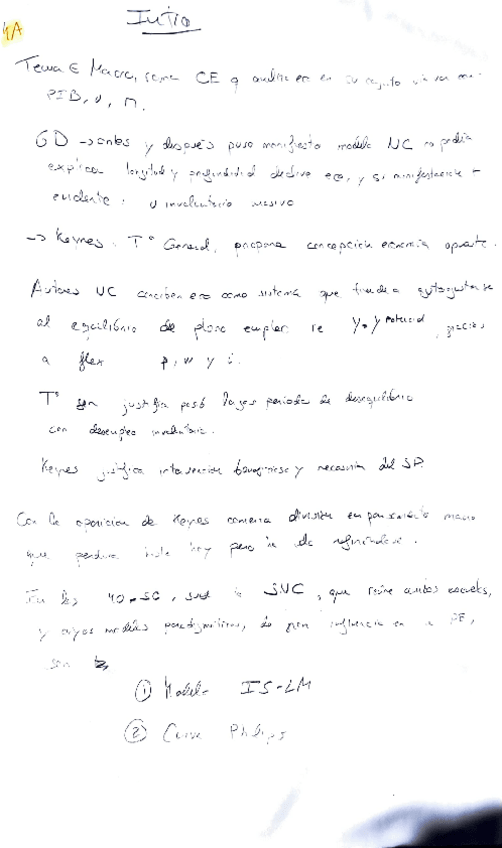 4A
Intro
Tema ∈ Macro, rama CE q analiza en su conjunto
PIB, U, π.
GD → antes y después puso manifiesto modelo NC no podía
explicar longitud y profundidad declive eco, y su manifestación +
evidente: U involuntario masivo
→ Keynes: Tª General, propone concepción economía opuesta.
Autores NC conciben eco como sistema que tiende a autoajustarse
al equilibrio de pleno empleo: Y potencial, gracias
a flex p, w y i.
Tª justifica posib largos periodos de desequilibrio
con desempleo involuntario.
Keynes justifica intervención y necesaria del SP.
Con la oposición de Keynes comienza división en pensamiento macro
que perdura hasta hoy pero ha ido
En los 40-50, surge la SNC, que reúne ambas escuelas,
y cuyos modelos paradigmáticos, de gran influencia en la PE,
son
① Modelo IS-LM
② Curva Philips